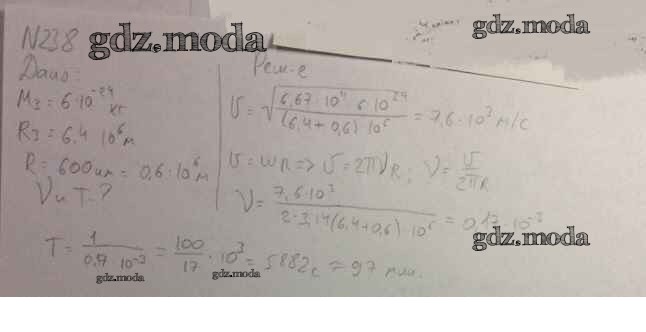 N238
gdz.moda
gdz.moda
Дано:
M₃ = 6·10⁻²⁴ кг
R₃ = 6,4 10⁶ м
R = 600 км = 0,6·10⁶ м
V и T-?
Реш-е
υ = √(6,67·10⁴ 6·10²⁴ / (6,4+0,6)·10⁶) = 7,6·10³ м/с
υ = ωR => υ = 2πνR; ν = υ / 2πR
ν = 7,6·10³ / 2·3,14(6,4+0,6)·10⁶ = 0,17·10⁻³
gdz.moda
T = 1 / 0,17 10⁻³ = 100 / 17 · 10³ = 5882 с = 97 мин.
gdz.moda
gdz.moda